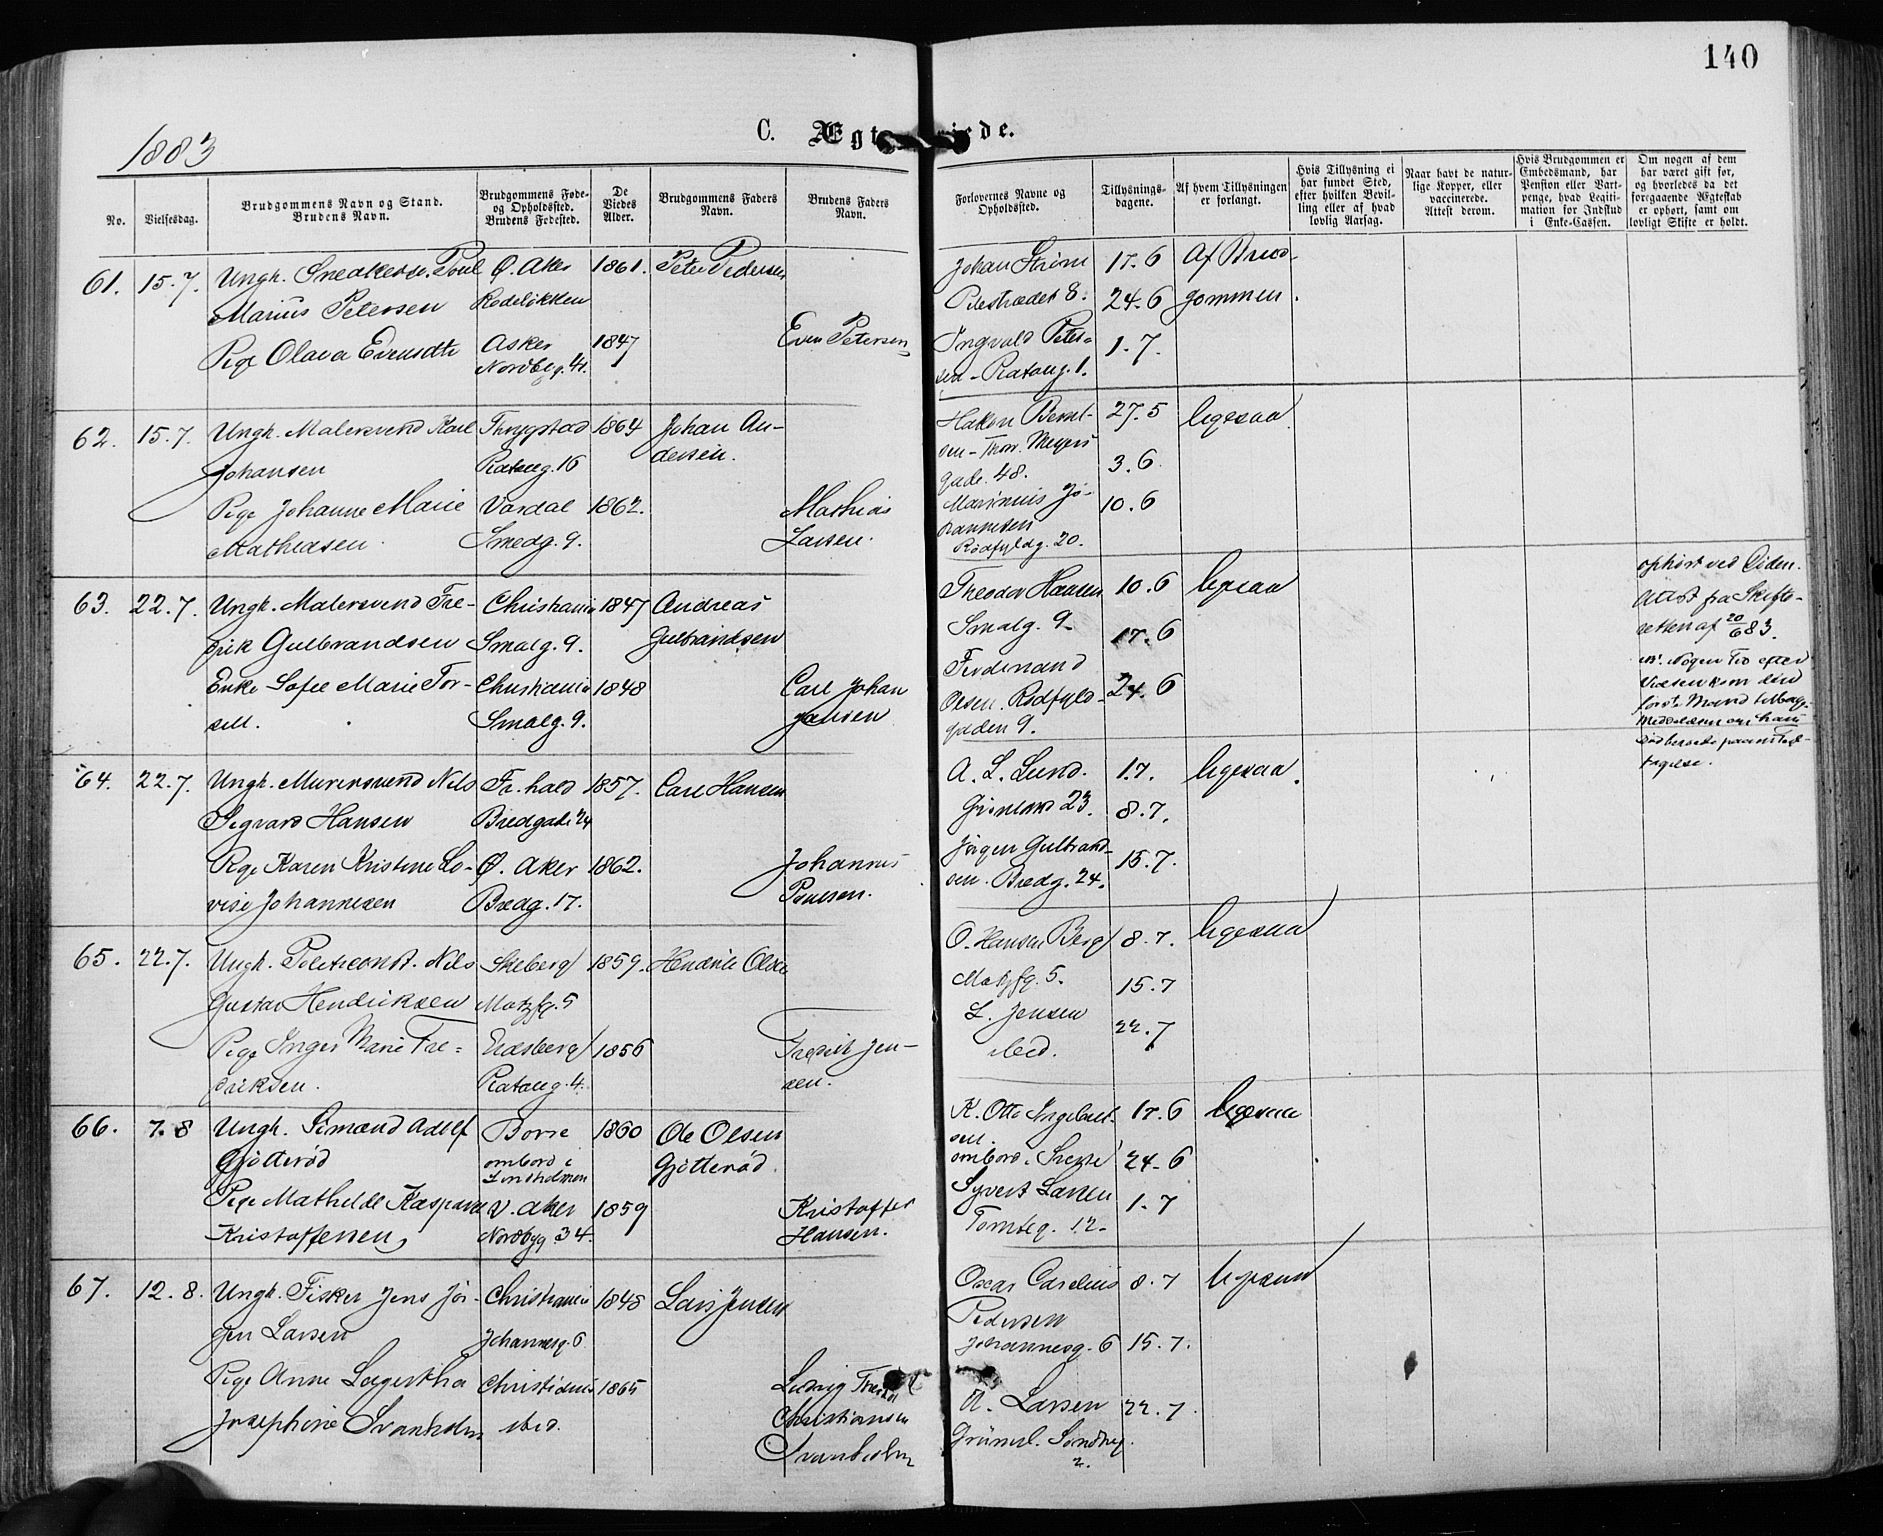 140
1883
C. Ægt iede.
No.
Vielsesdag.
Brudgommens Navn og Stand.
Brudens Navn.
Brudgommens Føde-
og Opholdssted.
Brudens Fødested.
De
Viedes
Alder.
Brudgommens Faders
Navn.
Brudens Faders
Navn.
Forlovernes Navne og
Opholdssted.
Tillysnings-
dagene.
Af hvem Tillysningen
er forlangt.
Hvis Tillysning ei
har fundet Sted,
efter hvilken Bevil-
ling eller af hvad
lovlig Aarsag.
Naar havt de natur-
lige Kopper, eller
vaccinerede.
Attest derom.
Hvis Brudgommen er
Embedsmand, har
Pension eller Vart-
penge, hvad Legiti-
mation for Indskud
i Enke-Cassen.
Om nogen af dem
har været gift før,
og hvorledes da det
foregaaende Ægteskab
er ophørt, samt om
lovligt Skifte er holdt.
61. 15.7. Ungk. Snedkersv. Poul Ø. Aker 1861. Peter Pedersen
Marius Petersen Rodeløkken
Pige Olava Evensdtr Asker 1847 Even Petersen
Nordbyg. 41.
Johan Strøm 17.6 Af Brud-
Pilestrædet 8. 24.6 gommen.
Ingvald Peter- 1.7.
sen - Ratkeug. 1.
62. 15.7. Ungk. Malersvend Karl Thrygstad 1864 Johan An-
Johansen 16 dersen.
Pige Johanne Marie Vardal 1862. Mathias
Mathiasen Smedg. 9. Larsen.
Hakon Bernt- 27.5 ligesaa
sen - Thorv. Meyers 3.6.
gade. 48.
Marinius Jo- 10.6
hannesen
Rødfyldg. 20.
63. 22.7. Ungk. Malersvend Fre- Christiania 1847 Andreas
drik Gulbrandsen Smalg. 9. Gulbrandsen
Enke Sofie Marie Tor- Christiania 1848 Carl Johan
sell. Smalg. 9. Jansen
Theodor Hansen 10.6 ligesaa
Smalg. 9 17.6
Ferdinand
Olsen. Rødfyld- 24.6
gaden 9.
ophørt ved Døden.
Attest fra Skifte-
retten af 20/6 83.
NB. Nogen Tid efter
64. 22.7. Ungk. Murersvend Nils Fr.hald 1857. Carl Hansen
Sigvard Hansen Bredgade 24
Pige Karen Kristine Lo- Ø. Aker 1862. Johannes
vise Johannesen Bredg. 17. Poulsen.
A. L. Lund. 1.7. ligesaa
23. 8.7.
Jørgen Gulbrand- 15.7.
sen. Bredg. 24.
65. 22.7. Ungk. Politiconst. Nils Skiberg 1859. Hendrik Olsen
Gustav Hendriksen Motzfg. 5
Pige Inger Marie Fre- Eidsberg 1856 Fredrik Jen-
driksen. 4. sen.
O. Hansen Berg 8.7. ligesaa
Motzfg. 5. 15.7
L. Jensen 22.7
ibid.
66. 7.8 Ungk. Simand Adolf Borre 1860 Ole Olsen
Gjøtterød ombord i Gjøtterød.
Lindholmen
Pige Mathilde Kaspara V. Aker 1859 Kristoffer
Kristoffersen Nordbyg 34. Hansen.
K. Otto Ingebret- 17.6 ligesaa
sen.
ombord i 24.6
Syvert Larsen 1.7
Tomteg. 12.
67. 12.8. Ungk. Fisker Jens Jør- Christiania 1848 Lars Jensen
gen Larsen Johannesg. 6
Pige Anne Lagertha Christiania 1865 Ludvig
Josephine Svanholm ibid. Christiansen
Svanholm
Oscar Carelius 8.7 ligesaa
Pedersen
Johannesg. 6 15.7.
A. Larsen 22.7.
Grünerl. Søndreg.
2.